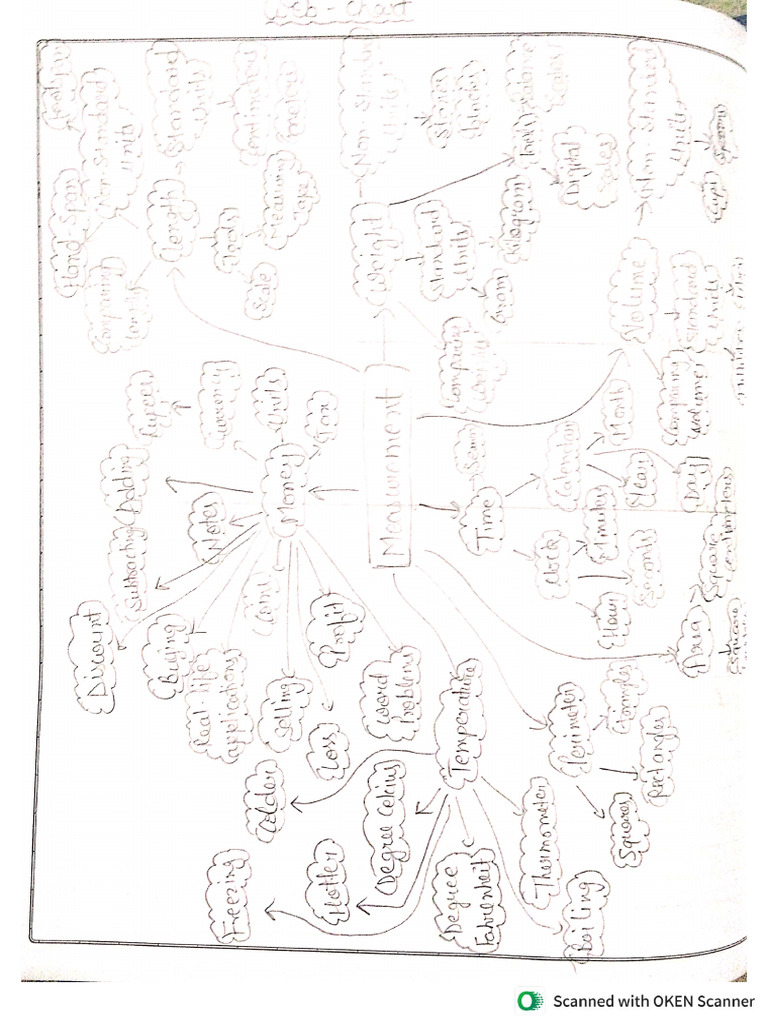 Web-Chart
Freezing
Colder
Hotter
Degree Celcius
Degree
Fahrenheit
Temperature
Thermometer
Boiling
Discount
Subtracting
Adding
Rupees
Currency
Notes
Money
Units
Buying
Real-life
applications
Selling
Loss
Profit
Word
Problems
Measurement
Perimeter
Triangles
Rectangles
Squares
Area
Square
centimeters
Square
Time
Calendar
Month
Year
Day
Clock
Minutes
Hour
Seconds
Length
Comparing
Hand-Span
Non-Standard
Units
Standard
Units
Tools
Scale
Measuring
Tape
Weight
Non-Standard
Units
Standard
Units
Gram
Kilogram
Tools
Balance
Scales
Digital
Scales
Comparing
Volume
Non-Standard
Units
Cups
Spoons
Standard
Units
Comparing
Volumes
Scanned with OKEN Scanner